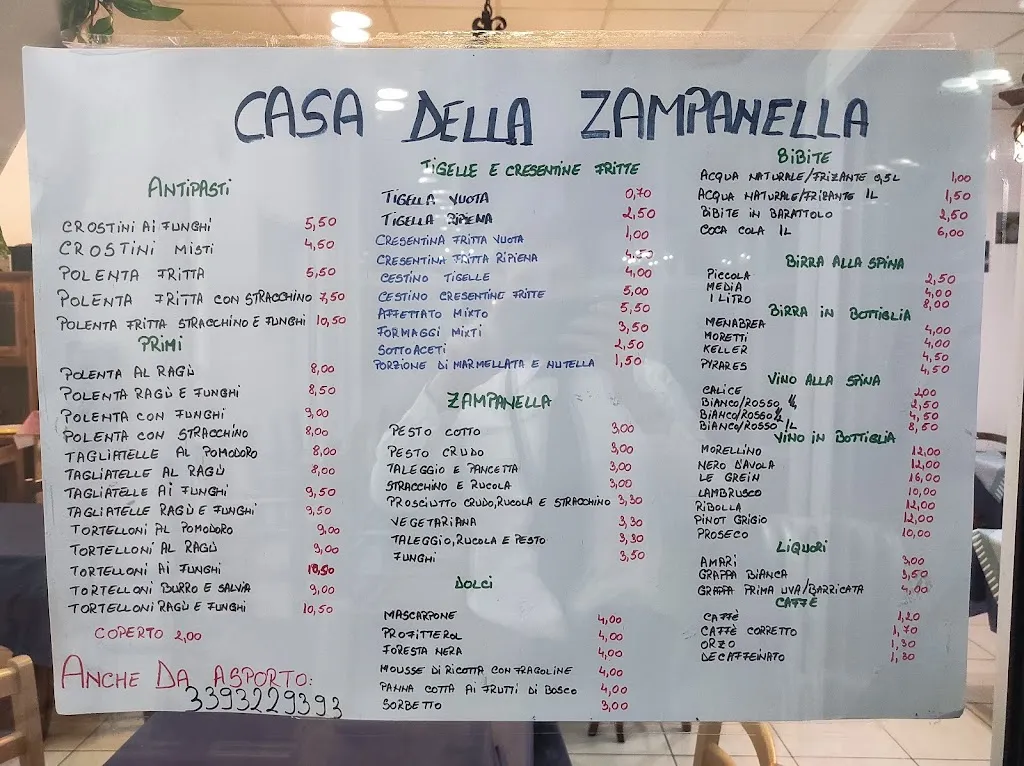 CASA DELLA ZAMPANELLA
ANTIPASTI
CROSTINI AI FUNGHI 5,50
CROSTINI MISTI 4,50
POLENTA FRITTA 5,50
POLENTA FRITTA CON STRACCHINO 7,50
POLENTA FRITTA STRACCHINO E FUNGHI 10,50
PRIMI
POLENTA AL RAGÙ 8,00
POLENTA RAGÙ E FUNGHI 8,50
POLENTA CON FUNGHI 9,00
POLENTA CON STRACCHINO 8,00
TAGLIATELLE AL POMODORO 8,00
TAGLIATELLE AL RAGÙ 8,00
TAGLIATELLE AI FUNGHI 9,50
TAGLIATELLE RAGÙ E FUNGHI 9,50
TORTELLONI AL POMODORO 9,00
TORTELLONI AL RAGÙ 9,00
TORTELLONI AI FUNGHI 10,50
TORTELLONI BURRO E SALVIA 9,00
TORTELLONI RAGÙ E FUNGHI 10,50
COPERTO 2,00
ANCHE DA ASPORTO:
3393229393
TIGELLE E CRESENTINE FRITTE
TIGELLA VUOTA 0,70
TIGELLA RIPIENA 2,50
CRESENTINA FRITTA VUOTA 1,00
CRESENTINA FRITTA RIPIENA 4,50
CESTINO TIGELLE 4,00
CESTINO CRESENTINE FRITTE 5,00
AFFETTATO MIXTO 5,50
FORMAGGI MIXTI 3,50
SOTTOACETI 2,50
PORZIONE DI MARMELLATA E NUTELLA 1,50
ZAMPANELLA
PESTO COTTO 3,00
PESTO CRUDO 3,00
TALEGGIO E PANCETTA 3,00
STRACCHINO E RUCOLA 3,00
PROSCIUTTO CRUDO,RUCOLA E STRACCHINO 3,30
VEGETARIANA 3,30
TALEGGIO,RUCOLA E PESTO 3,30
FUNGHI 3,50
DOLCI
MASCARPONE 4,00
PROFITTEROL 4,00
FORESTA NERA 4,00
MOUSSE DI RICOTTA CON FRAGOLINE 4,00
PANNA COTTA AI FRUTTI DI BOSCO 4,00
SORBETTO 3,00
BIBITE
ACQUA NATURALE/FRIZANTE 0,5L 1,00
ACQUA NATURALE/FRIZANTE 1L 1,50
BIBITE IN BARATTOLO 2,50
COCA COLA 1L 6,00
BIRRA ALLA SPINA
PICCOLA 2,50
MEDIA 4,00
1 LITRO 8,00
BIRRA IN BOTTIGLIA
MENABREA 4,00
MORETTI 4,00
KELLER 4,50
PYRARES 4,50
VINO ALLA SPINA
CALICE 2,00
BIANCO/ROSSO 1/4 2,50
BIANCO/ROSSO 1/2 4,50
BIANCO/ROSSO 1L 8,50
VINO IN BOTTIGLIA
MORELLINO 12,00
NERO D'AVOLA 12,00
LE GREIN 16,00
LAMBRUSCO 10,00
RIBOLLA 12,00
PINOT GRIGIO 12,00
PROSECO 10,00
LIQUORI
AMARI 3,00
GRAPPA BIANCA 3,50
GRAPPA PRIMA UVA/BARRICATA 4,00
CAFFÈ
CAFFÈ 1,20
CAFFÈ CORRETTO 1,70
ORZO 1,30
DECAFFEINATO 1,30